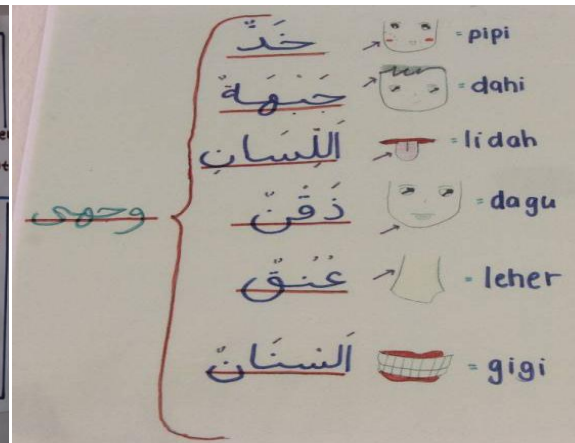 خَدٌّ = pipi
جَبْهَةٌ = dahi
اَللِّسَانِ = lidah
وجهى
ذَقْنٌ = dagu
عُنُقٌ = leher
اَلسنَانٌ = gigi